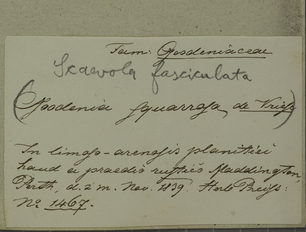 Fam: Goodeniaceae
Scaevola fasciculata
(Goodenia squarrosa, de Vriese)
In limoso-arenosis planitiei
haud a praedis rusticis Maddington,
Perth, d. 2 m. Nov. 1839. Herb. Preiss:
No 1467.